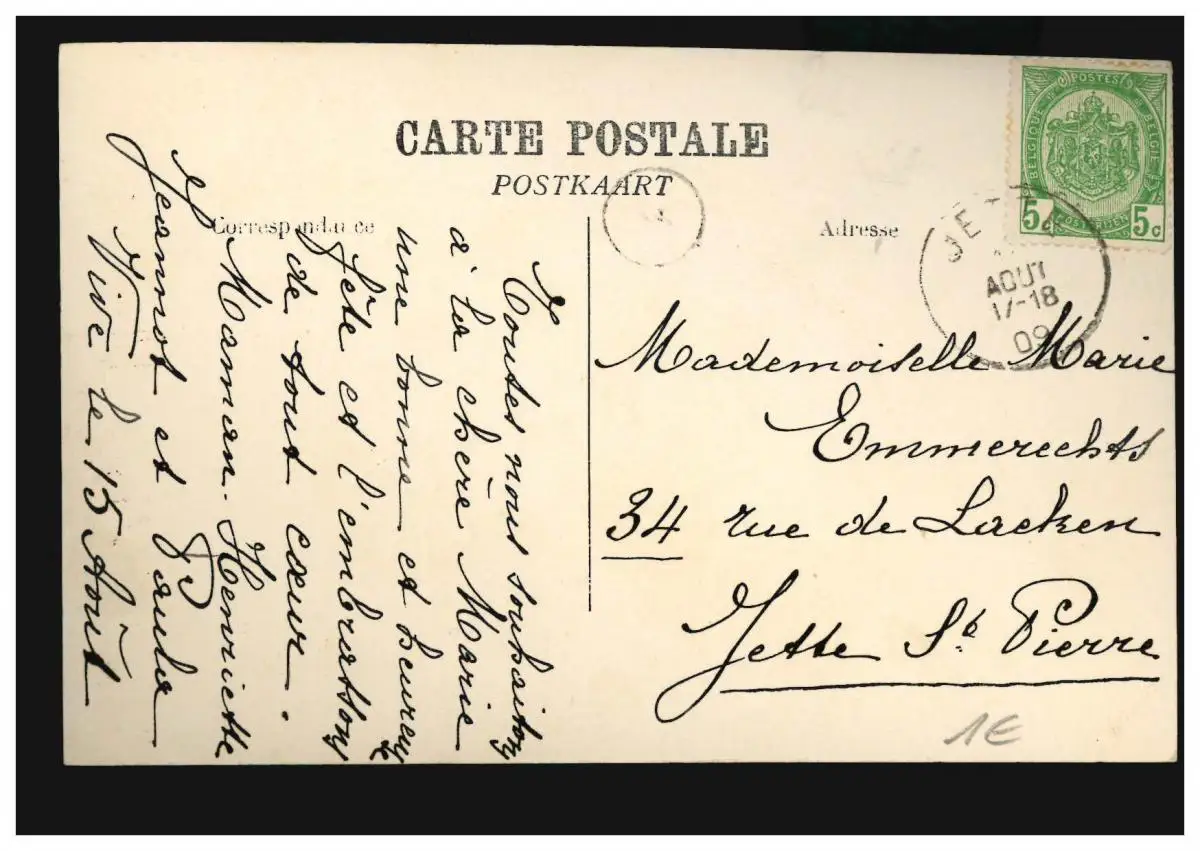 CARTE POSTALE
POSTKAART
Correspondance
Adresse
BELGIQUE POSTES BELGIE
5c POSTERIJEN 5c
JETTE
AOUT
17-18
09
Toutes nous souhaitons
à la chère Marie
une bonne et heureuse
fête et l'embrassons
de tout cœur.
Maman. Henriette
Jeannot et Paula
Vive le 15 Août
Mademoiselle Marie
Emmerechts
34 rue de Laeken
Jette St. Pierre
1€